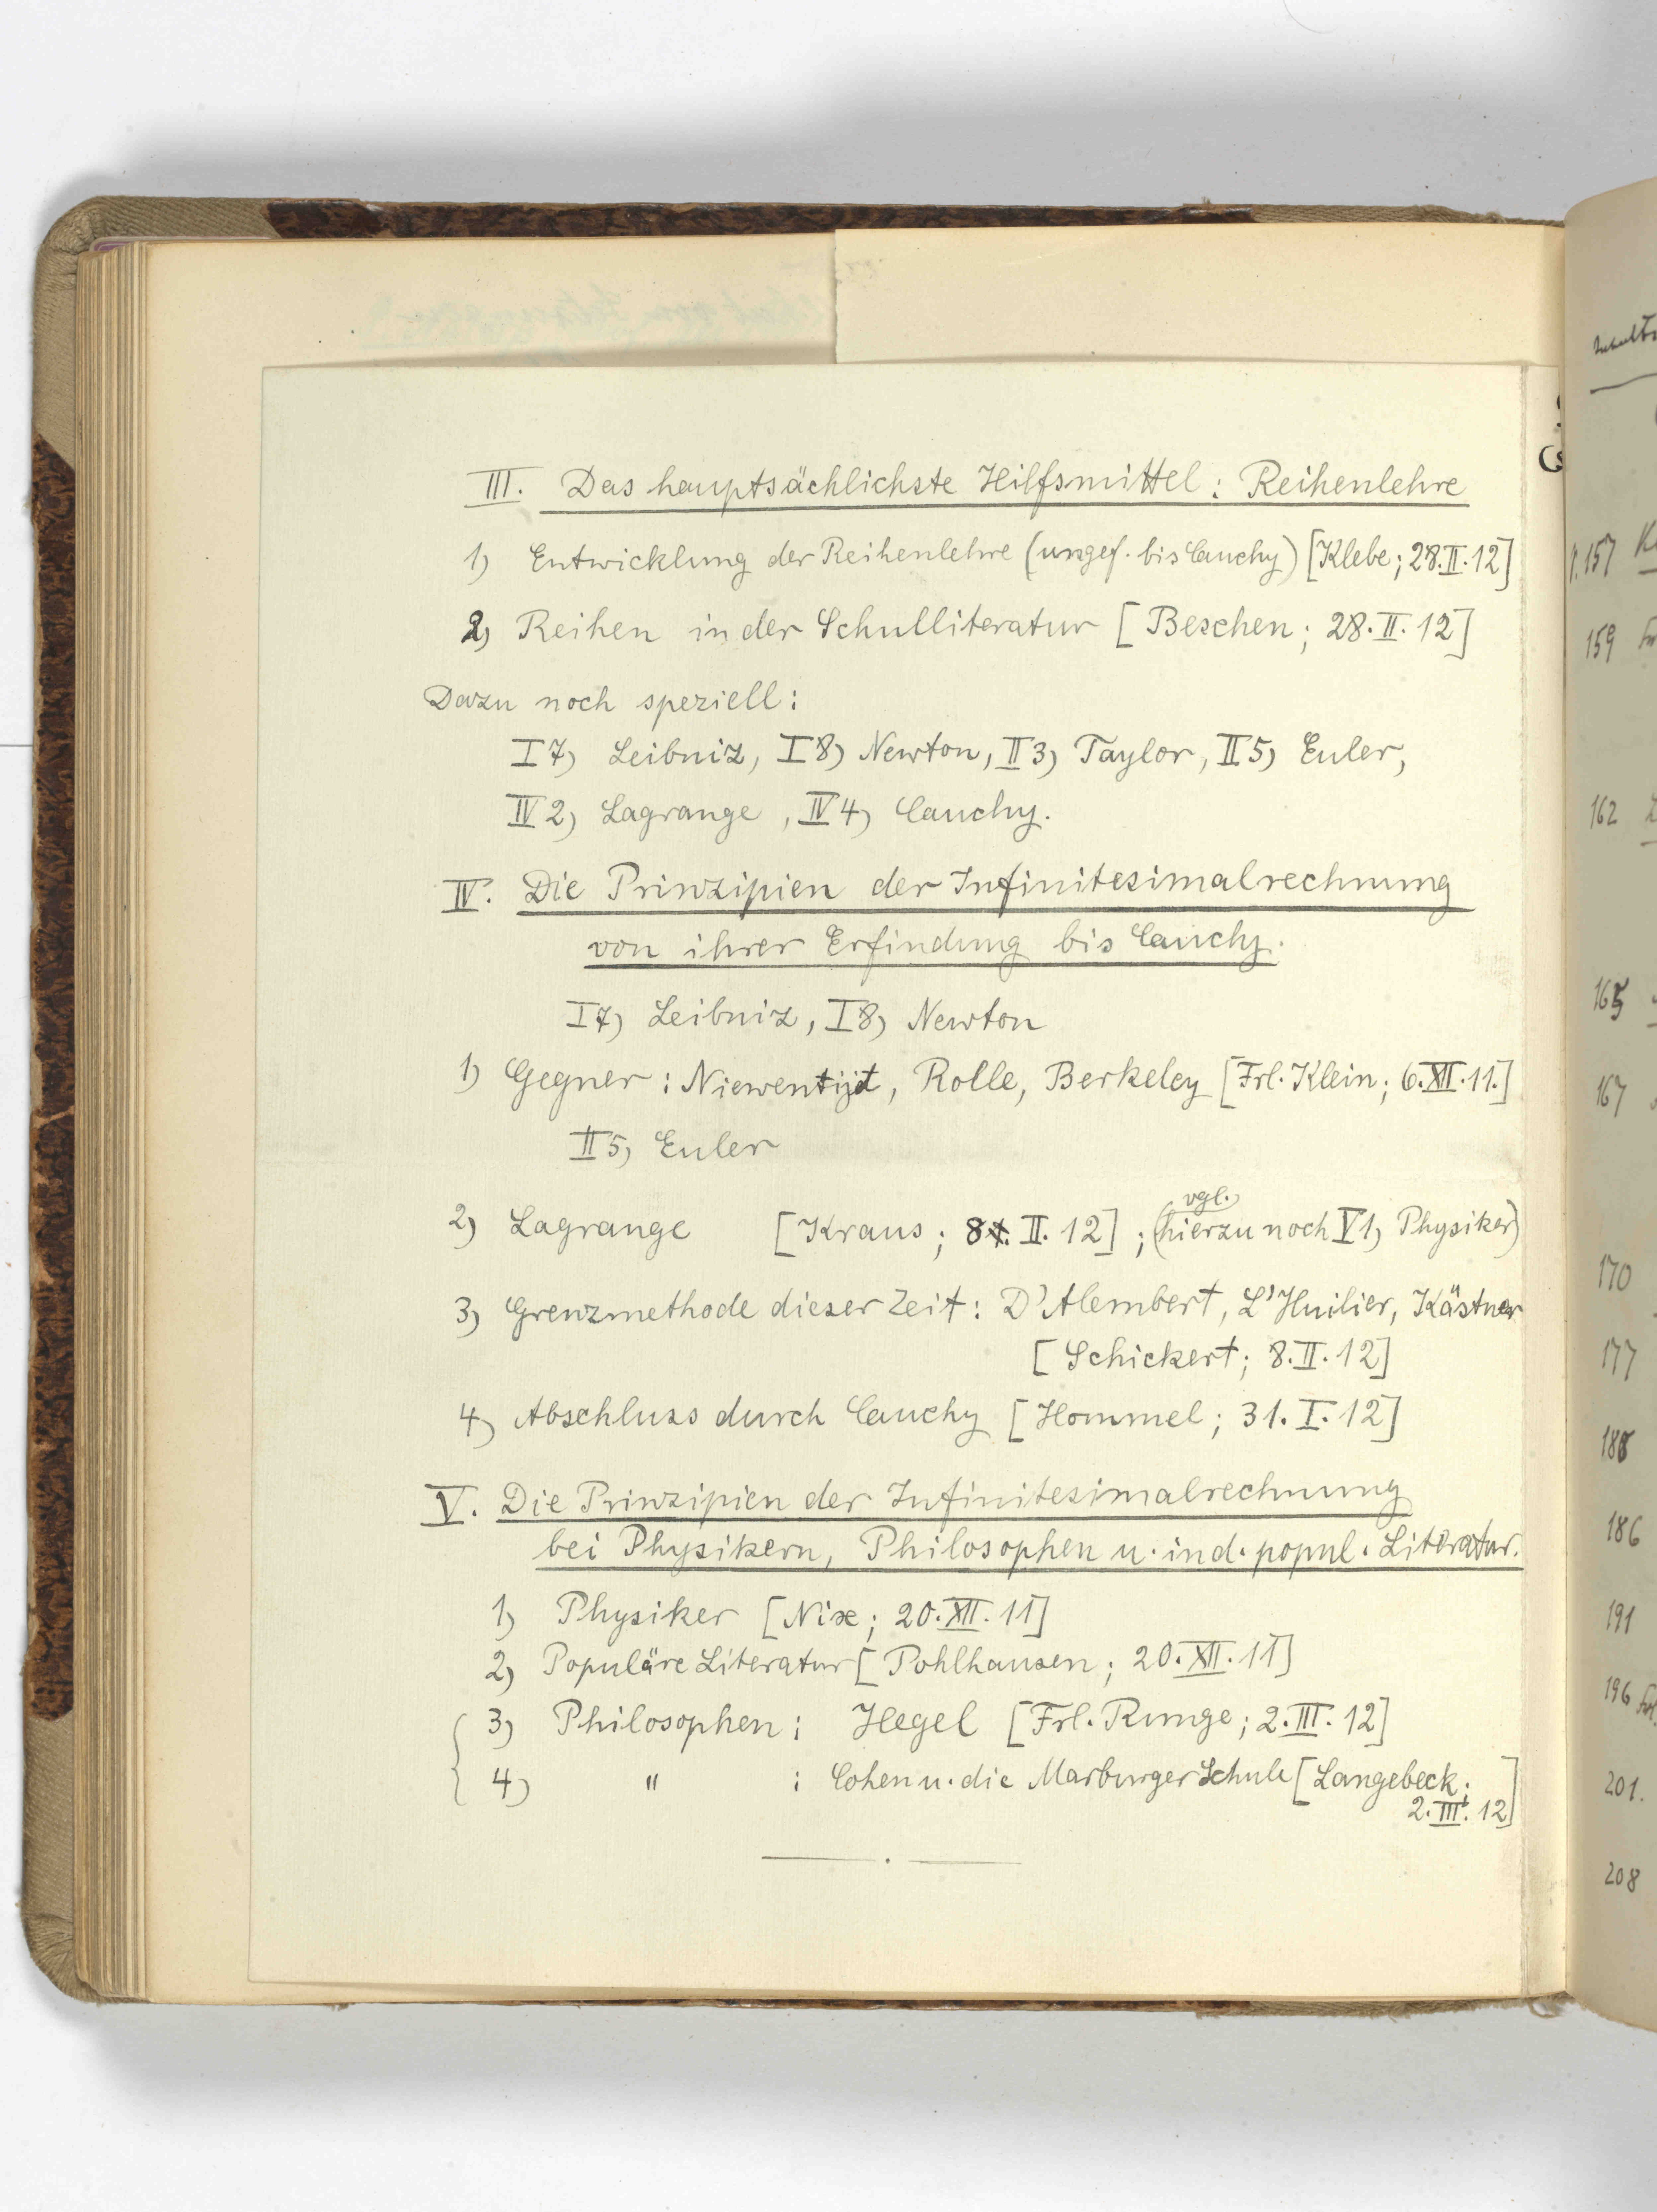 III. Das hauptsächlichste Hilfsmittel: Reihenlehre
1) Entwicklung der Reihenlehre (ungef. bis Cauchy) [Klebe; 28.II.12]
2) Reihen in der Schulliteratur [Beschen; 28.II.12]
Dazu noch speziell:
I 7) Leibniz, I 8) Newton, II 3) Taylor, II 5) Euler,
IV 2) Lagrange, IV 4) Cauchy.
IV. Die Prinzipien der Infinitesimalrechnung
von ihrer Erfindung bis Cauchy.
I 7) Leibniz, I 8) Newton
1) Gegner: Niewentijt, Rolle, Berkeley [Frl. Klein; 6.XII.11.]
II 5) Euler
vgl.
2) Lagrange [Kraus; 8. II. 12]; (hierzu noch V 1) Physiker)
3) Grenzmethode dieser Zeit: D'Alembert, L'Huilier, Kästner
[Schickert; 8.II.12]
4) Abschluss durch Cauchy [Hommel; 31.I.12]
V. Die Prinzipien der Infinitesimalrechnung
bei Physikern, Philosophen u. in d. popul. Literatur.
1) Physiker [Nix; 20.XII.11]
2) Populäre Literatur [Pohlhausen; 20.XII.11]
3) Philosophen: Hegel [Frl. Runge; 2.III.12]
4) " : Cohen u. die Marburger Schule [Langebeck;
2.III.12]
157
159
162
165
167
170
177
186
191
196
201.
208